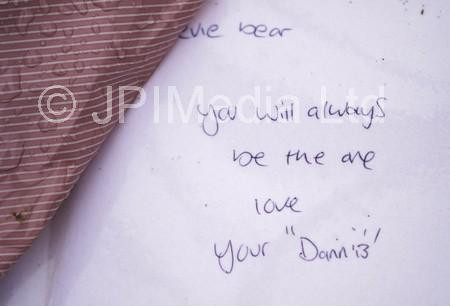 bear
© JPIMedia Ltd
you will always
be the one
love
your "Danni's"